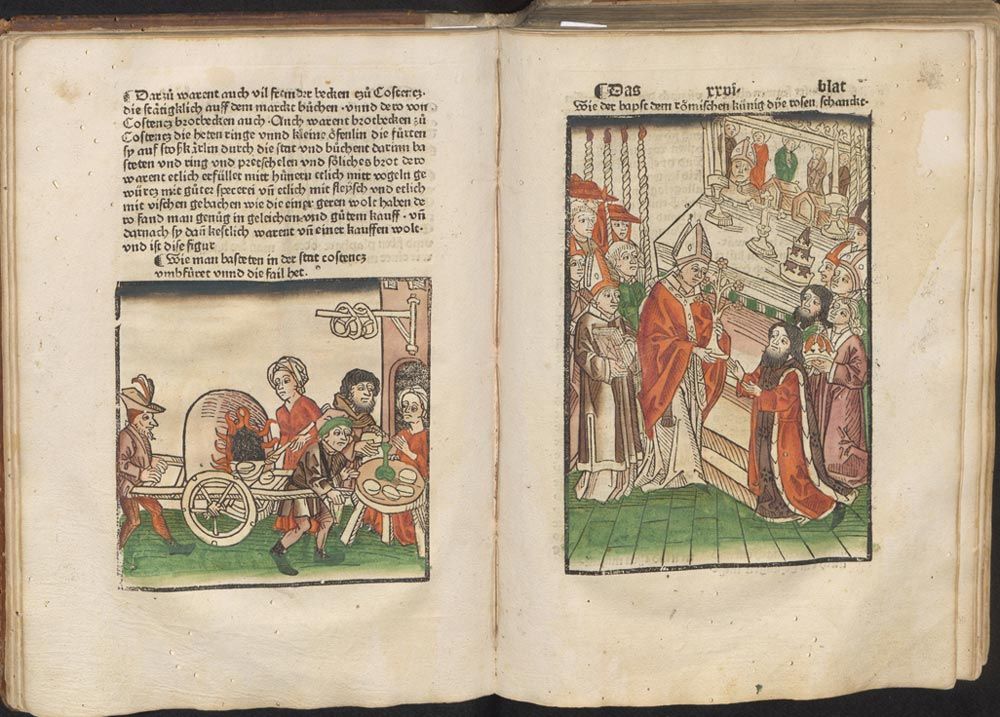 ¶ Darzů warent auch vil frembder becken tzů Costentz.
die stätigklich auff dem marckt bůchen · vnnd der o von
Costentz brotbecken auch · Auch warent brotbecken zů
Costentz die heten ringe vnnd kleine öfenlin die fůrten
sy auf stoßkärlin durch die stat vnd bůchent darinn ba
steten vnd ring vnd pretschelen vnd sölliches brot der o
warent etlich erfüllet mitt hůnern etlich mitt vogeln ge
würtz mit gůter specerei vñ etlich mit fleysch vnd etlich
mit vischen gebachen wie die einer geren wolt haben de
ro fand man genůg in geleichem vnd gůtem kauff · vñ
darnach sy dañ kestlich warent vñ einer kauffen wolt ·
vnd ist dise figur
¶ Wie man basteten in der stat costentz
vmbfůret vnnd die fail het.
¶ Das xxvi · blat
Wie der bapst dem römischen künig dye rosen schanckt ·